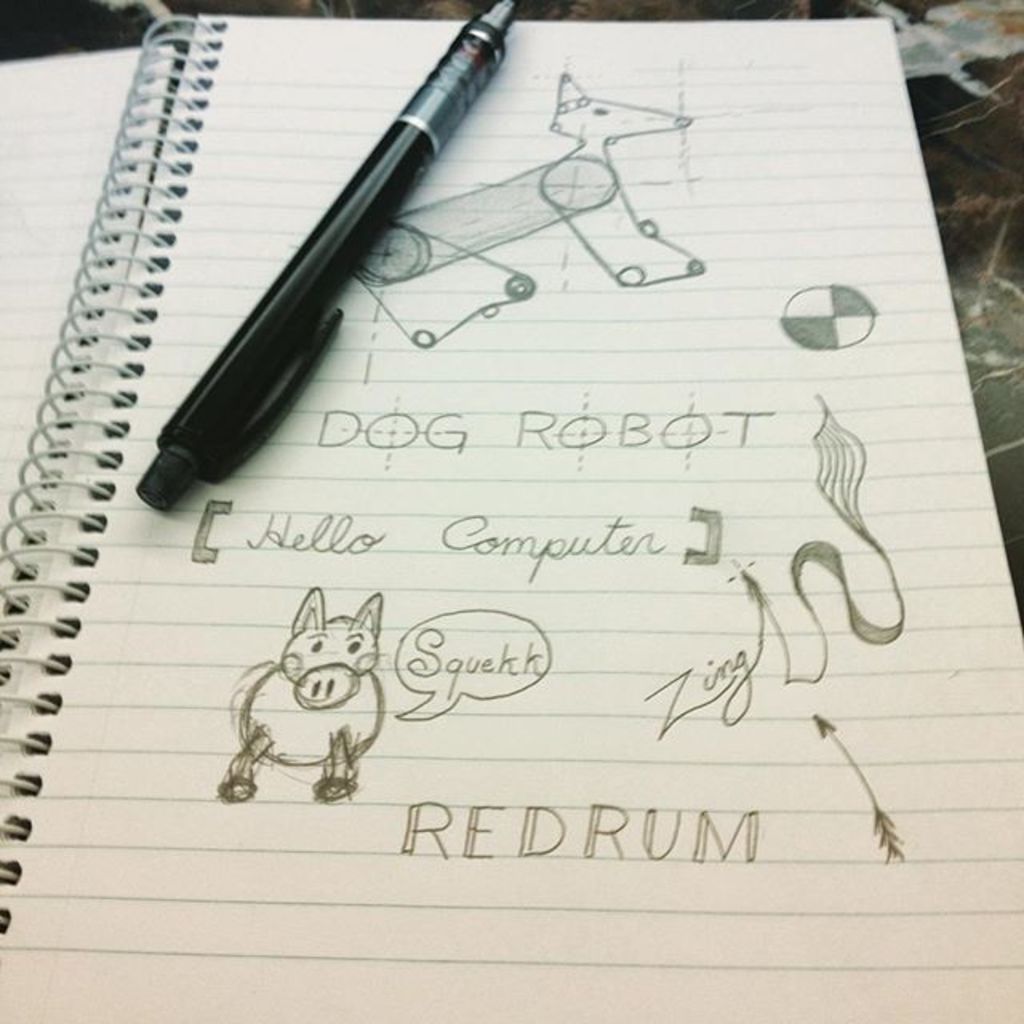 DOG ROBOT
[ Hello Computer ]
Squekk
Zing
REDRUM